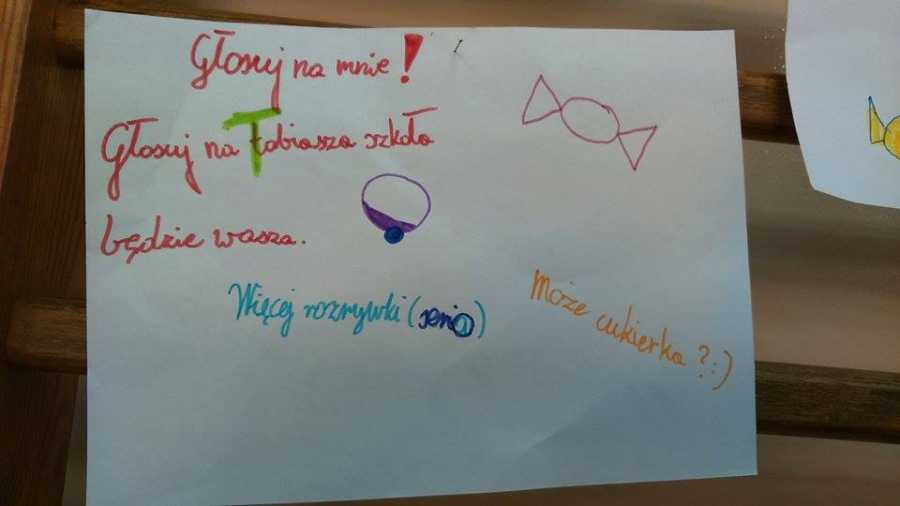 Głosuj na mnie!
Głosuj na Tobiasza szkoła
będzie wasza.
Więcej rozrywki (seria)
Może cukierka ? :)